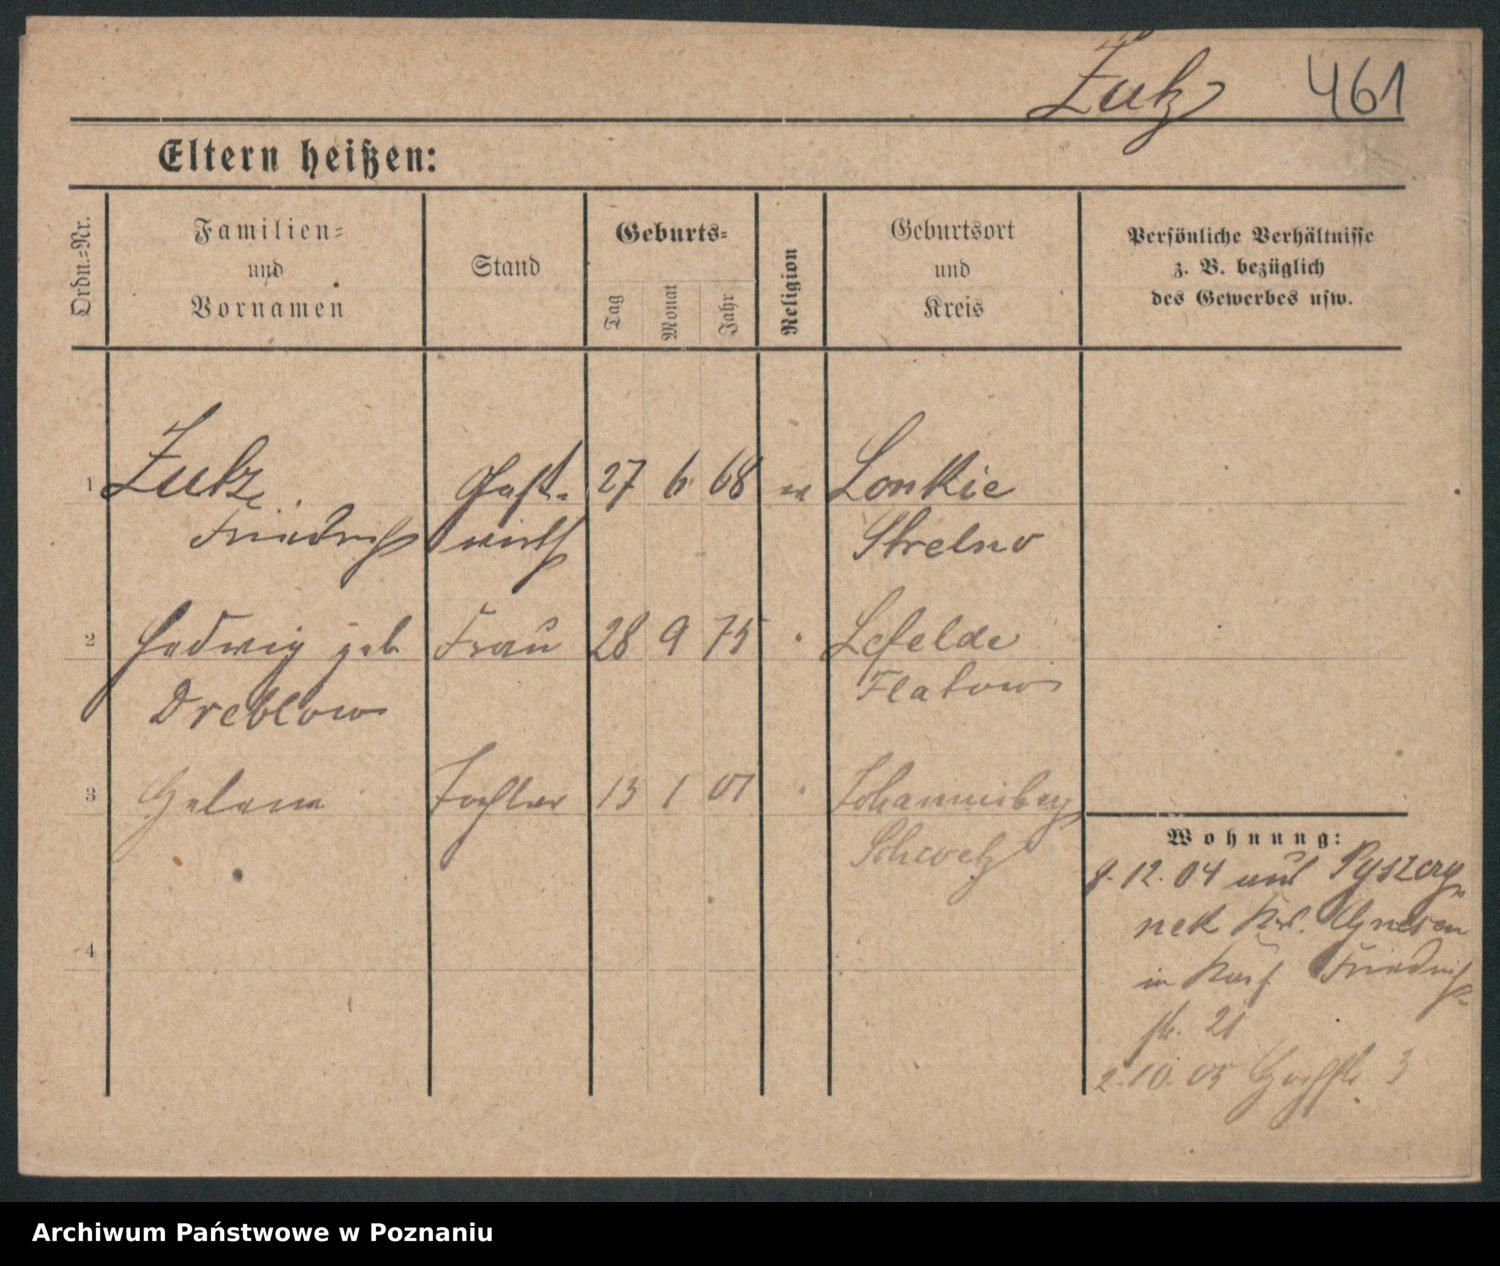 Zutz 461
Eltern heißen:
Ordn.-Nr.
Familien-
und
Vornamen
Stand
Geburts-
Tag
Monat
Jahr
Religion
Geburtsort
und
Kreis
Persönliche Verhältnisse
z. B. bezüglich
des Gewerbes usw.
1 Gast- 27 6 68 Lonkie
Friedrich wirth Strelno
2 Hedwig geb Frau 28 9 75 " Lefelde
Dreblow Flatow
3 Helene Tochter 13 1 01 " Johannisberg
Schwetz
4
Wohnung:
9.12.04 aus Pyszczy-
nek Krs. Gnesen
in Friedrich-
str. 21
2.10.05 3
Archiwum Państwowe w Poznaniu